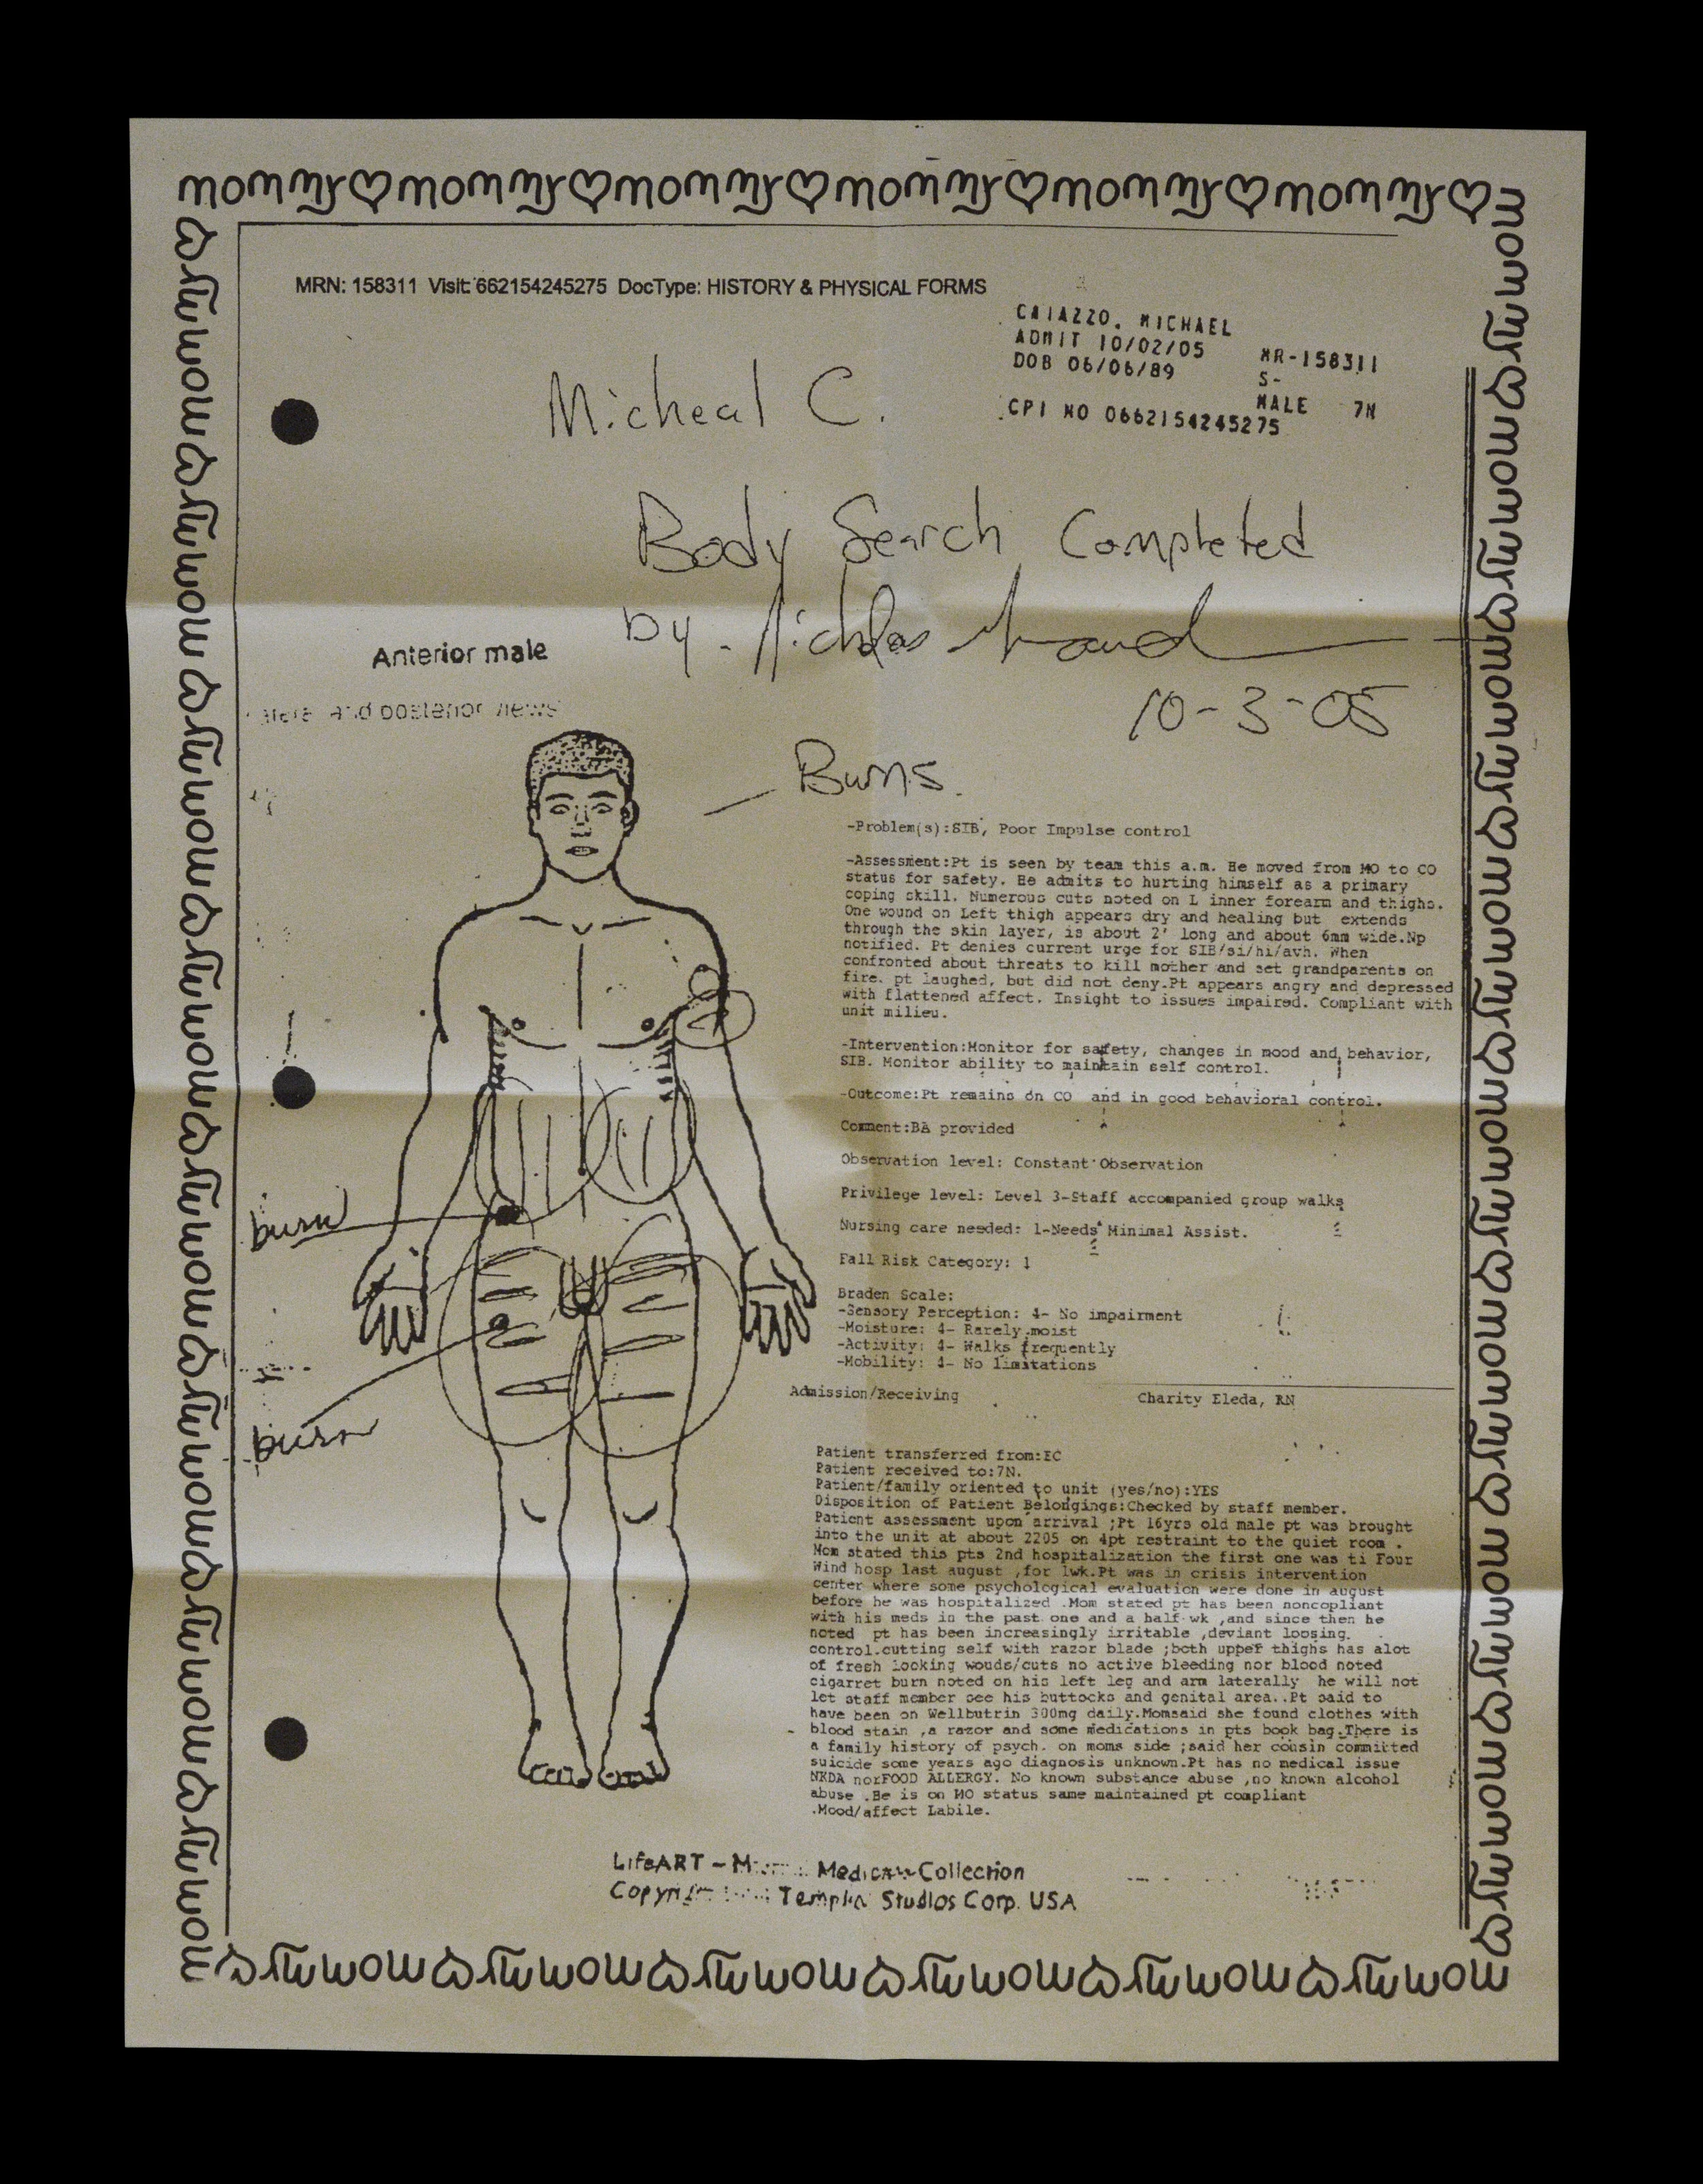 mommy♡mommy♡mommy♡mommy♡mommy♡mommy♡
MRN: 158311 Visit: 662154245275 DocType: HISTORY & PHYSICAL FORMS
CAIAZZO, MICHAEL
ADMIT 10/02/05 MR-158311
DOB 06/06/89 S-
MALE 7N
CPI NO 0662154245275
Micheal C.
Body Search Completed
by - Nicholas
10-3-05
Anterior male
and posterior views
Burns.
burn
burn
-Problem(s):SIB, Poor Impulse control
-Assessment:Pt is seen by team this a.m. He moved from MO to CO
status for safety. He admits to hurting himself as a primary
coping skill. Numerous cuts noted on L inner forearm and thighs.
One wound on Left thigh appears dry and healing but extends
through the skin layer, is about 2' long and about 6mm wide.Np
notified. Pt denies current urge for SIB/si/hi/avh. When
confronted about threats to kill mother and set grandparents on
fire. pt laughed, but did not deny.Pt appears angry and depressed
with flattened affect. Insight to issues impaired. Compliant with
unit milieu.
-Intervention:Monitor for safety, changes in mood and behavior,
SIB. Monitor ability to maintain self control.
-Outcome:Pt remains on CO and in good behavioral control.
Comment:BA provided
Observation level: Constant Observation
Privilege level: Level 3-Staff accompanied group walks
Nursing care needed: 1-Needs Minimal Assist.
Fall Risk Category: 1
Braden Scale:
-Sensory Perception: 4- No impairment
-Moisture: 4- Rarely moist
-Activity: 4- Walks frequently
-Mobility: 4- No limitations
Admission/Receiving Charity Eleda, RN
Patient transferred from:EC
Patient received to:7N.
Patient/family oriented to unit (yes/no):YES
Disposition of Patient Belongings:Checked by staff member.
Patient assessment upon arrival ;Pt 16yrs old male pt was brought
into the unit at about 2205 on 4pt restraint to the quiet room .
Mom stated this pts 2nd hospitalization the first one was ti Four
Wind hosp last august ,for 1wk.Pt was in crisis intervention
center where some psychological evaluation were done in august
before he was hospitalized .Mom stated pt has been noncopliant
with his meds in the past one and a half wk ,and since then he
noted pt has been increasingly irritable ,deviant loosing.
control.cutting self with razor blade ;both upper thighs has alot
of fresh looking wouds/cuts no active bleeding nor blood noted
cigarret burn noted on his left leg and arm laterally he will not
let staff member see his buttocks and genital area..Pt said to
have been on Wellbutrin 300mg daily.Momsaid she found clothes with
blood stain ,a razor and some medications in pts book bag.There is
a family history of psych. on moms side ;said her cousin committed
suicide some years ago diagnosis unknown.Pt has no medical issue
NKDA norFOOD ALLERGY. No known substance abuse ,no known alcohol
abuse .He is on MO status same maintained pt compliant
.Mood/affect Labile.
LifeART - Medical Collection
Copyright Studios Corp. USA
mommy♡mommy♡mommy♡mommy♡mommy♡mommy♡
mommy♡mommy♡mommy♡mommy♡mommy♡mommy♡mommy♡mommy♡
mommy♡mommy♡mommy♡mommy♡mommy♡mommy♡mommy♡mommy♡